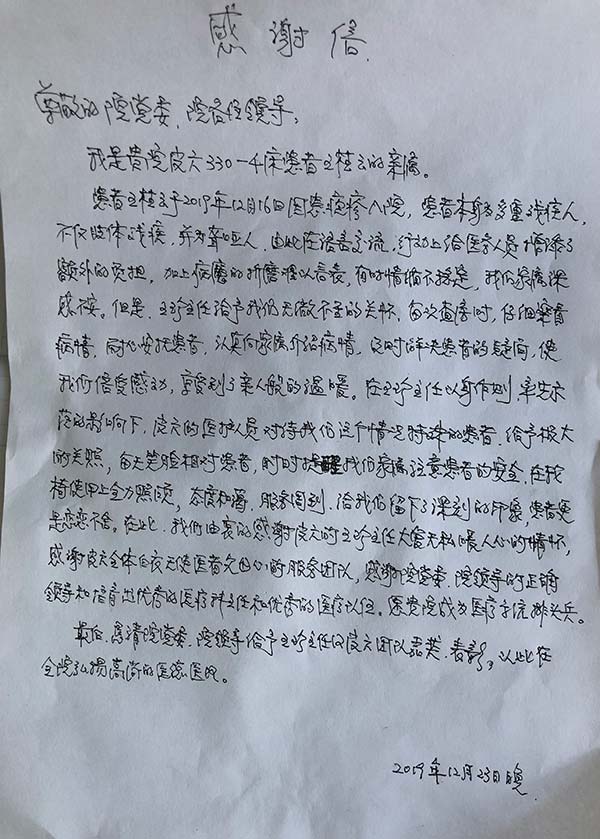 感谢信
尊敬的院党委、院各位领导:
我是贵院皮六330-4床患者王桂云的亲属。
患者王桂云于2019年12月16日因患疱疹入院,患者本身为多重残疾人,
不仅肢体残疾,并为聋哑人,由此在语言交流,行动上给医务人员增添了
额外的负担,加上病魔的折磨难以言表,有时情绪不稳定,我们家属深
感不安。但是,王珍主任给予我们无微不至的关怀,每次查房时,仔细察看
病情,耐心安抚患者,认真向家属介绍病情,及时解决患者的疑问,使
我们倍受感动,享受到了亲人般的温暖。在王珍主任以身作则,率先示
范的影响下,皮六的医护人员对待我们这个情况特殊的患者,给予极大
的关照,每天笑脸相对患者,时时提醒我们家属注意患者的安全,在轮
椅使用上全力照顾,态度和蔼,服务周到,给我们留下了深刻的印象,患者更
是恋恋不舍。在此,我们由衷的感谢皮六的王珍主任大爱无私暖人心的情怀,
感谢皮六全体白衣天使医者父母心的服务团队,感谢院党委、院领导的正确
领导和培育出优秀的医疗主任和优秀的医疗队伍。愿贵院成为医疗系统排头兵。
最后,恳请院党委、院领导给予王珍主任及皮六团队嘉奖、表彰,以此在
全院弘扬高尚的医德医风。
2019年12月23日晚